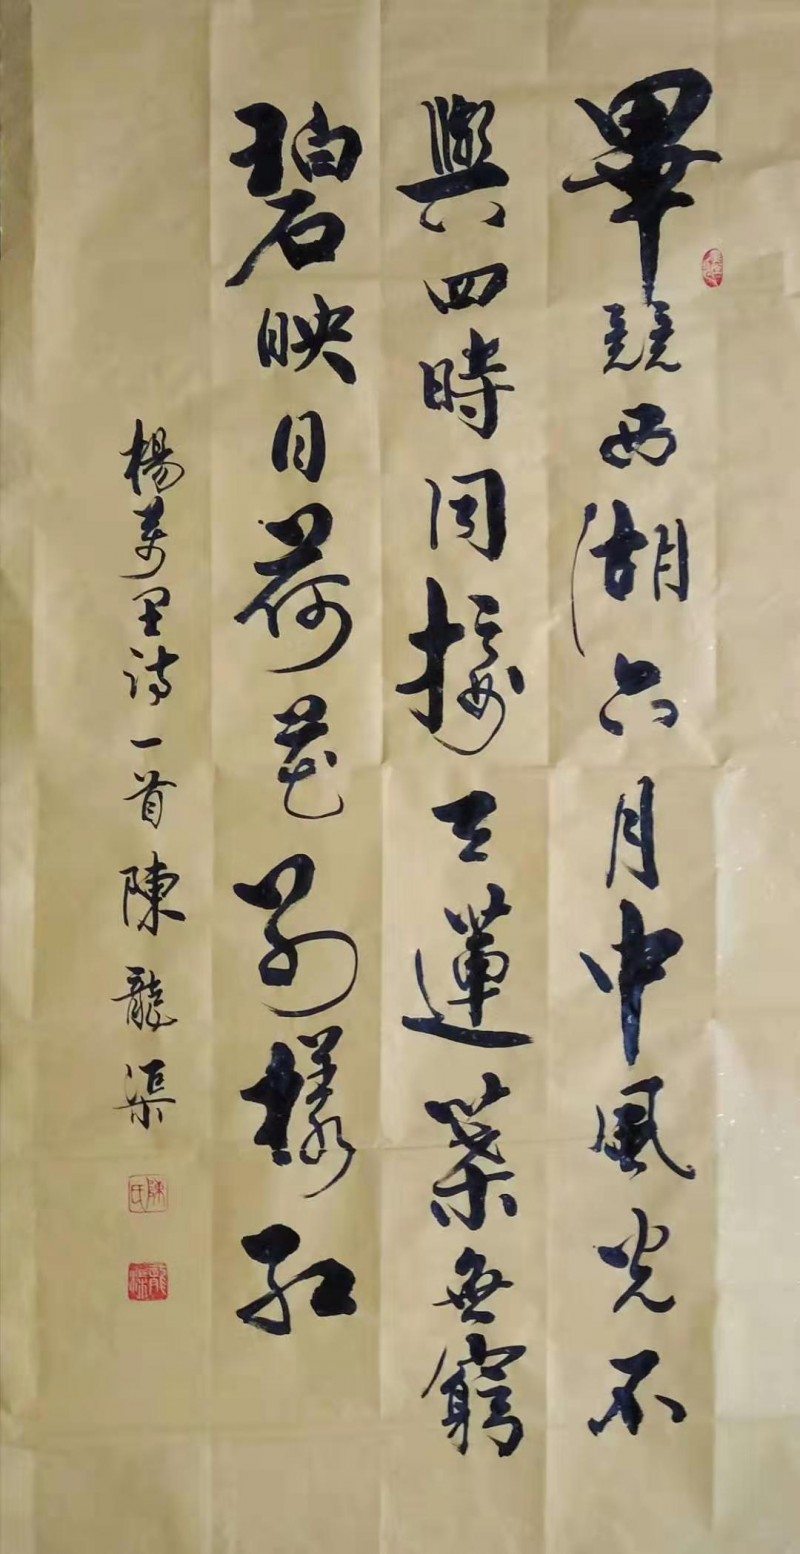 畢競西湖六月中風光不
與四時同接天蓮葉無窮
碧映日荷花別樣紅
楊萬里詩一首陳龍渠
陳氏
龍渠